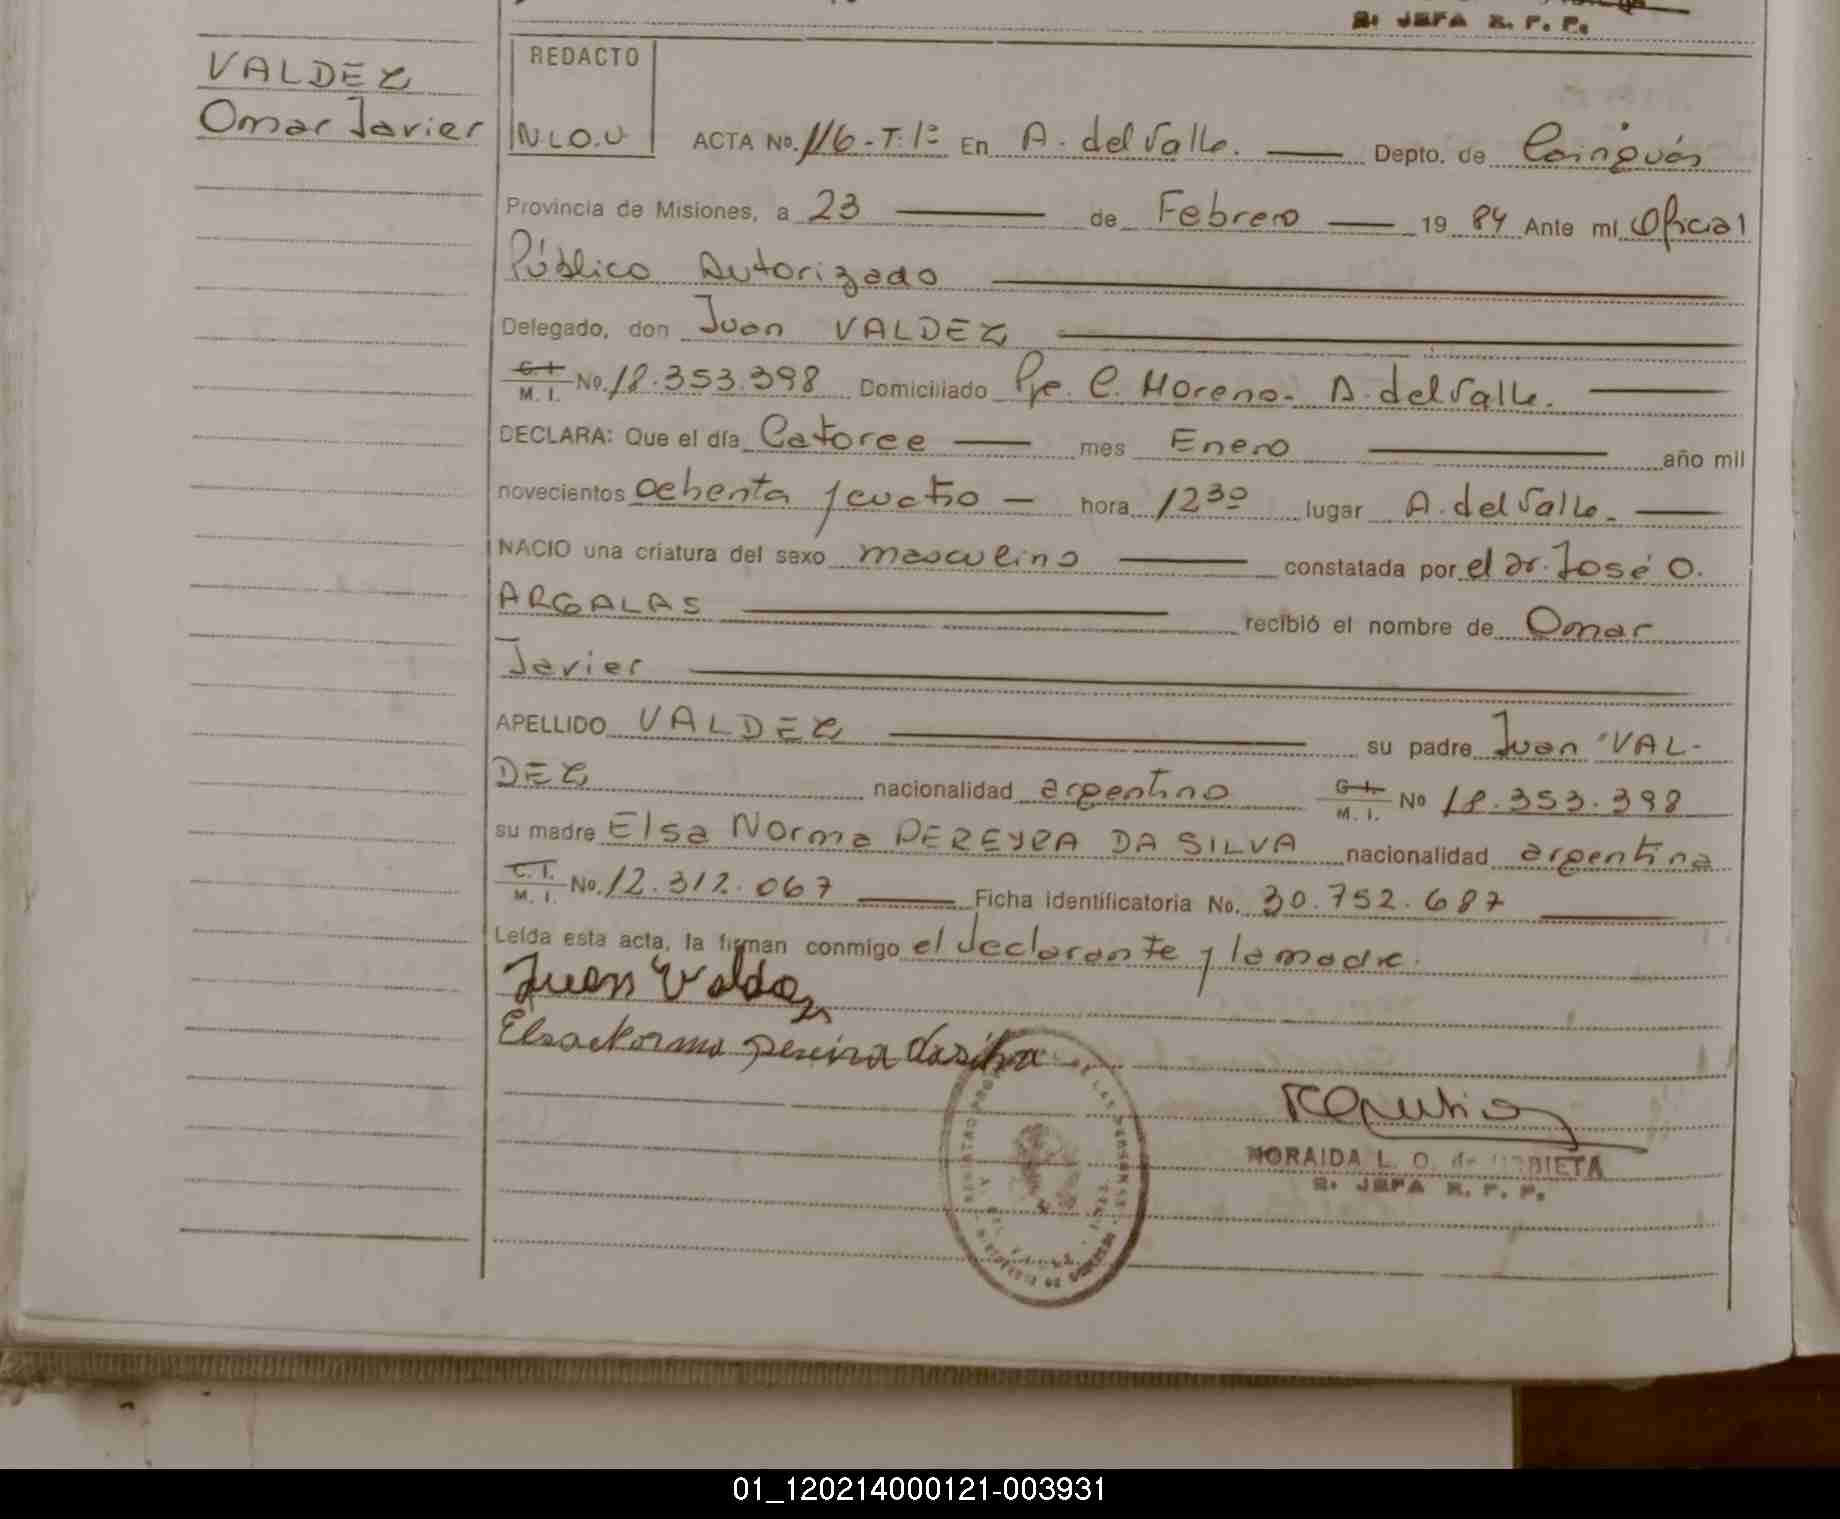 S. JEFA R. P. P.
VALDEZ
Omar Javier
REDACTO
N.L.O.U
ACTA No. 116-T.1º En A. del Valle. Depto. de Cainguás
Provincia de Misiones, a 23 de Febrero 1984 Ante mi Oficial
Público Autorizado
Delegado, don Juan VALDEZ
C. I. M. I. No. 18.353.398 Domiciliado Pje. C. Moreno. A. del Valle.
DECLARA: Que el día Catorce mes Enero año mil
novecientos ochenta y cuatro hora 12 30 lugar A. del Valle.
NACIO una criatura del sexo masculino constatada por el Dr. José O.
ARGALAS recibió el nombre de Omar
Javier
APELLIDO VALDEZ su padre Juan VAL-
DEZ nacionalidad argentino C. I. M. I. No 18.353.398
su madre Elsa Norma PEREYRA DA SILVA nacionalidad argentina
C. I. M. I. No. 12.312.067 Ficha identificatoria No. 30.752.687
Leída esta acta, la firman conmigo el declarante y la madre.
Juan Valdez
Elsa Norma pereira dasilva
NORAIDA L. O. de URBIETA
S. JEFA R. P. P.
01_120214000121-003931